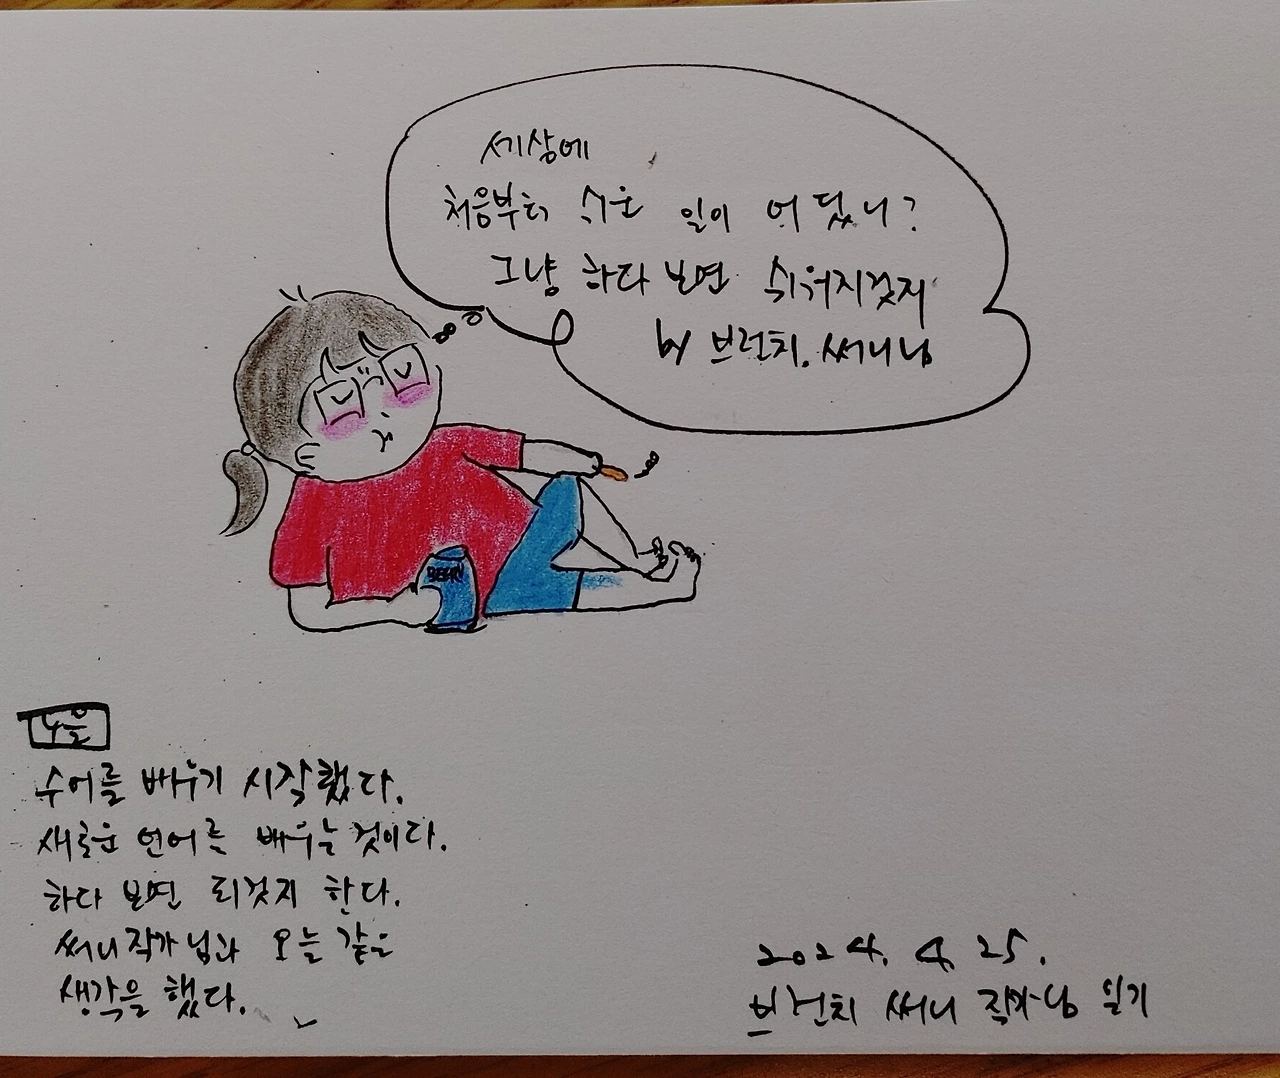 세상에
처음부터 쉬운 일이 어딨니?
그냥 하다보면 쉬워지겠지
by 브런치. 써니님
BEER
수어를 배우기 시작했다.
새로운 언어를 배우는 것이다.
하다보면 되겠지 한다.
써니 작가님과 오늘 같은
생각을 했다.
2024. 4. 25.
브런치 써니 작가님 읽기